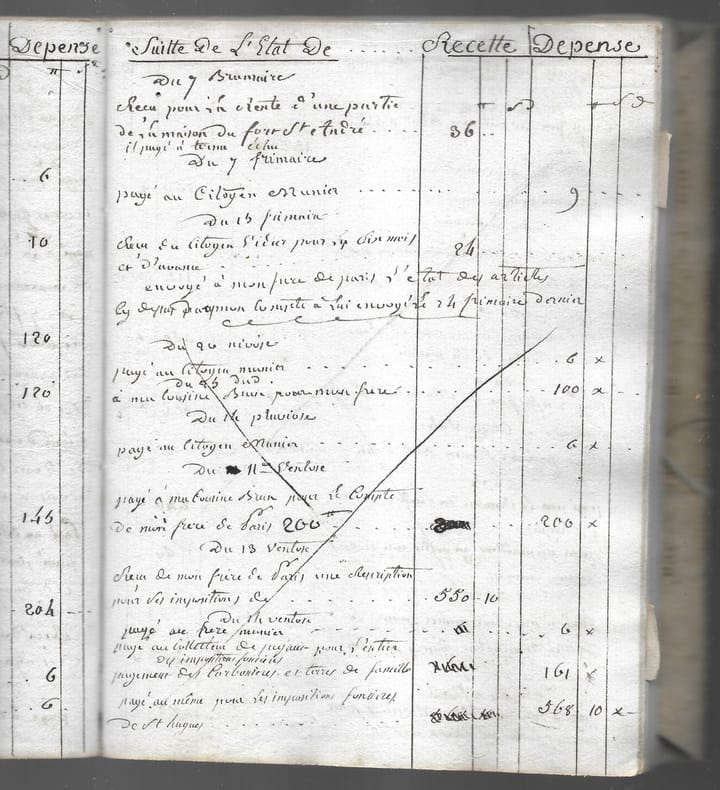 Depense
6
10
120
120
145
204
6
6
Suitte De L'Etat De ...... Recette Depense
Du 7 Brumaire
Recu pour La Rente d'une partie
de La maison du fort St André .... 36
il payé à terme échu
Du 7 frimaire
payé au Citoyen Munier ...... 9
Du 13 frimaire
Recu du Citoyen Didier pour six mois 24
et d'avance
envoyé à mon frere de paris L'etat des articles
cy dessus mon Compte à Lui envoyé Le 24 frimaire dernier
Du 20 nivose
payé au Citoyen munier ...... 6 x
Du 25 dud.
à ma Cousine Brun pour mon frere ...... 100 x
Du 14 pluviose
payé au Citoyen Munier ...... 6 x
Du 11 Ventose
payé à ma Cousine Brun pour Le Compte
de mon frere de Paris 200 ...... 200 x
Du 13 Ventose
Recu de mon frere de Paris une Rescription
pour Les impositions de ...... 550 10
Du 14 ventose
payé au frere munier ...... 6 x
payé au Collecteur de pour L'entier
des impositions foncieres
payement des Carbonieres et terres de famille 161 x
payé au même pour Les impositions foncieres 568 10 x
de St hugues ......